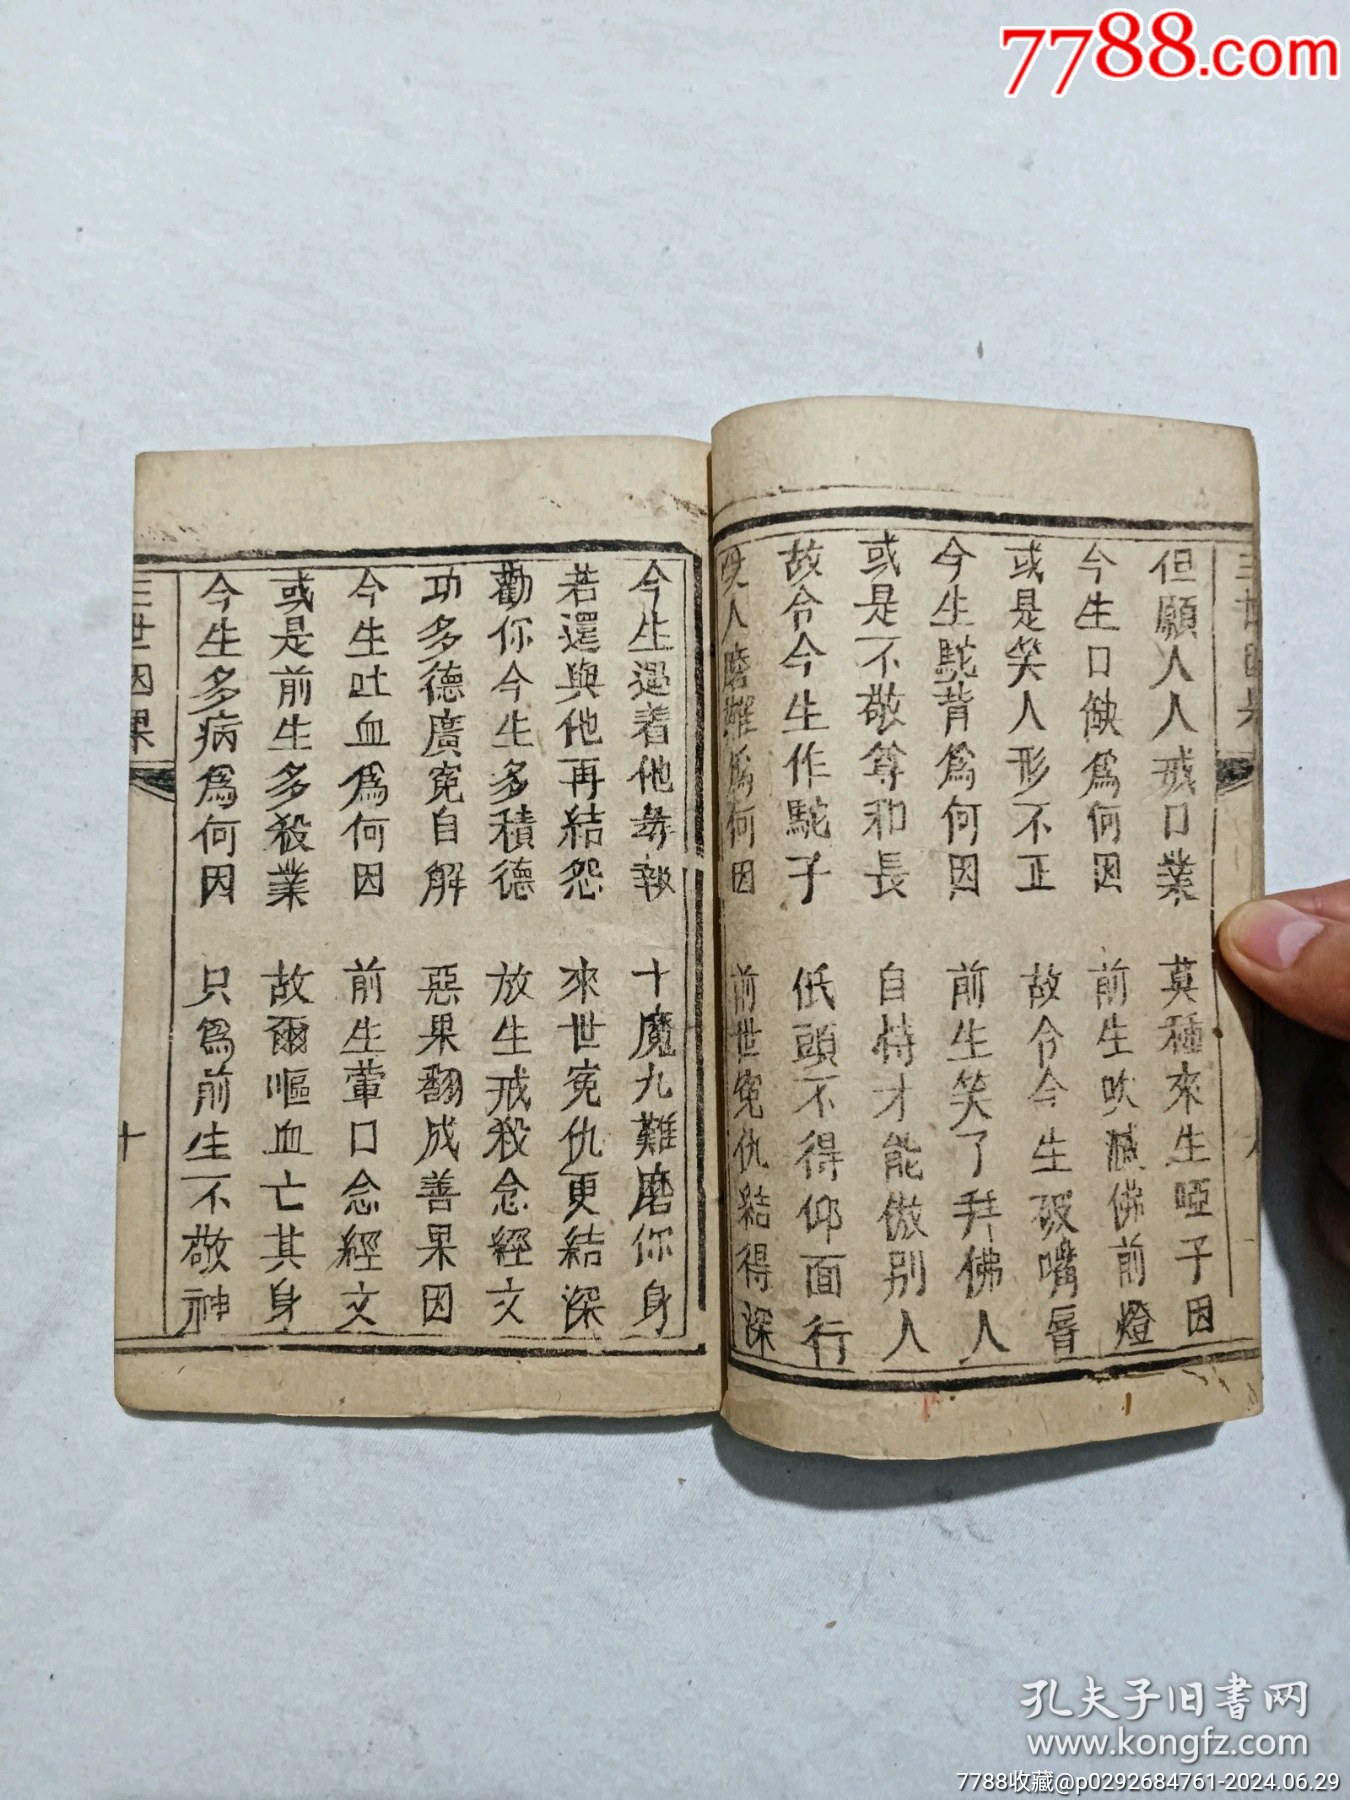 7788.com
三世因果
但願人人戒口業 莫種來生啞子因
今生口缺爲何因 前生吹滅佛前燈
或是笑人形不正 故令今生破嘴唇
今生駝背爲何因 前生笑了拜佛人
或是不敬尊和長 自恃才能傲別人
故令今生作駝子 低頭不得仰面行
人磨難爲何因 前世寃仇結得深
今生遇着他報 十魔九難磨你身
若還與他再結怨 來世寃仇更結深
勸你今生多積德 放生戒殺念經文
功多德廣寃自解 惡果翻成善果因
今生吐血爲何因 前生葷口念經文
或是前生多殺業 故爾嘔血亡其身
今生多病爲何因 只爲前生不敬神
三世因果
十
孔夫子旧書网
www.kongfz.com
7788收藏@p0292684761-2024.06.29